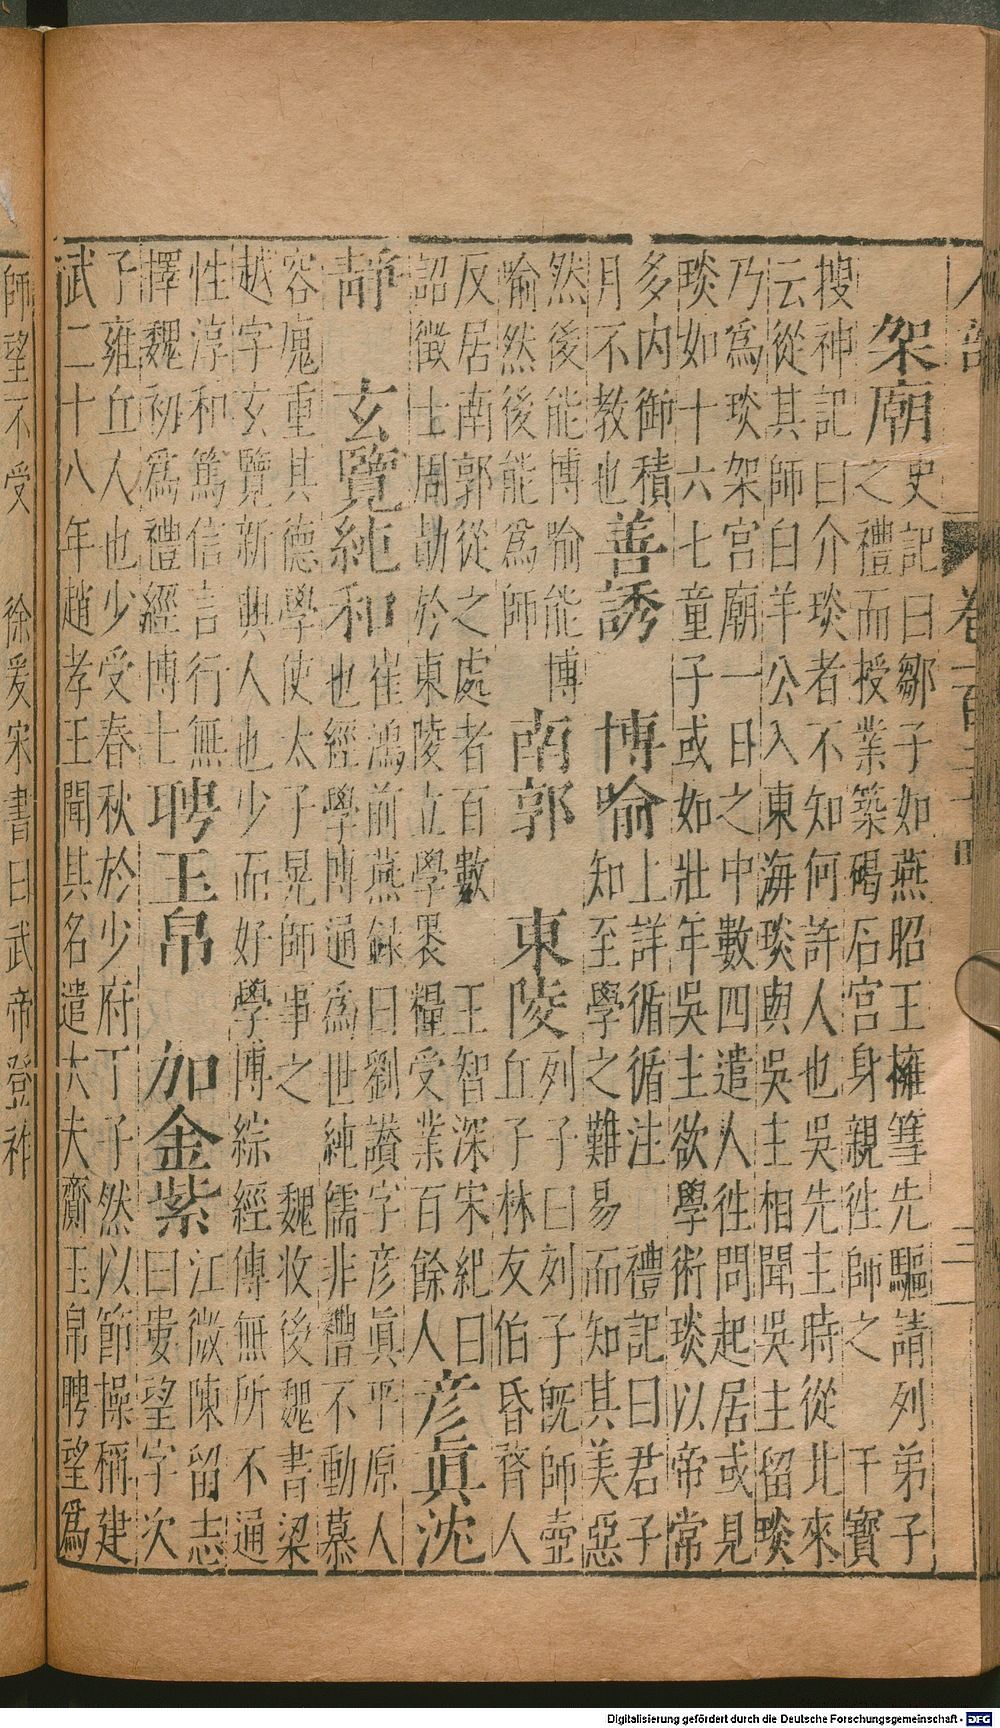 人部 卷一百二十四 三
架廟 史記曰鄒子如燕昭王擁篲先驅請列弟子
之禮而授業築碣石宮身親徃師之 干寶
搜神記曰介琰者不知何許人也吳先主時從北來
云從其師白羊公入東海琰與吳主相聞吳主留琰
乃爲琰架宮廟一日之中數四遣人徃問起居或見
琰如十六七童子或如壯年吳主欲學術琰以帝常
多内御積
月不教也
善誘 博喻 上詳循循注 禮記曰君子
知至學之難易而知其美惡
然後能博喻能博
喻然後能爲師
南郭 東陵 列子曰列子旣師壺
丘子林友伯昏瞀人
反居南郭從之處者百數 王智深宋紀曰
詔徵士周勛於東陵立學裹糧受業百餘人
彥眞沈
靜 玄覽純和 崔鴻前燕錄曰劉讃字彥眞平原人
也經學博通爲世純儒非禮不動慕
容廆重其德學使太子晃師事之 魏收後魏書梁
越字玄覽新興人也少而好學博綜經傳無所不通
性淳和篤信言行無
擇魏初爲禮經博士
聘玉帛 加金紫 江微陳留志
曰婁望字次
子雍丘人也少受春秋於少府丁子然以節操稱建
武二十八年趙孝王聞其名遣大夫齎玉帛聘望爲
師望不受 徐爰宋書曰武帝登祚
Digitalisierung gefördert durch die Deutsche Forschungsgemeinschaft - DFG